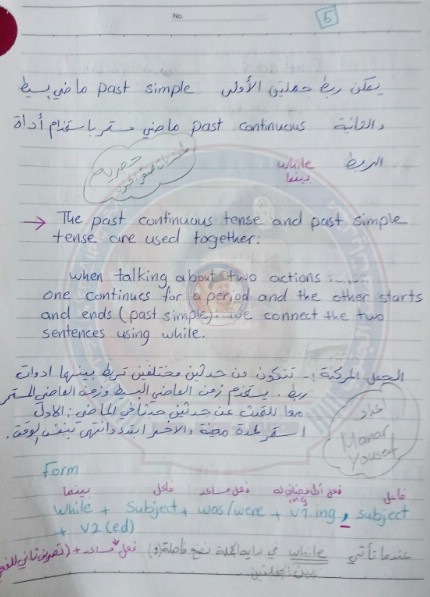 No.
5
يمكن ربط جملتين الأولى past simple ماضي بسيط
والثانية past continuous ماضي مستمر باستخدام أداة
الربط while
بينما
حصرية
→ The past continuous tense and past simple
tense are used together:
when talking about two actions
one continues for a period and the other starts
and ends (past simple). we connect the two
sentences using while.
الجمل المركبة :- تتكون من حدثين مختلفين تربط بينها ادوات
ربط. يستخدم زمن الماضي البسيط وزمن الماضي المستمر
معا للتحدث عن حدثين حدثا في الماضي: الاول
استمر لمدة معينة والاخر ابتدا وانتهى بنفس الوقت.
Manar
Yousef
Form
بينما فاعل فعل مساعد ing فاعل
while + Subject + was/were + v1.ing , subject
+ V2 (ed)
عندما تأتي while في بداية الجملة نضع فاصلة (و) فعل مساعد + (تصريف ثاني للفعل
بين الجملتين